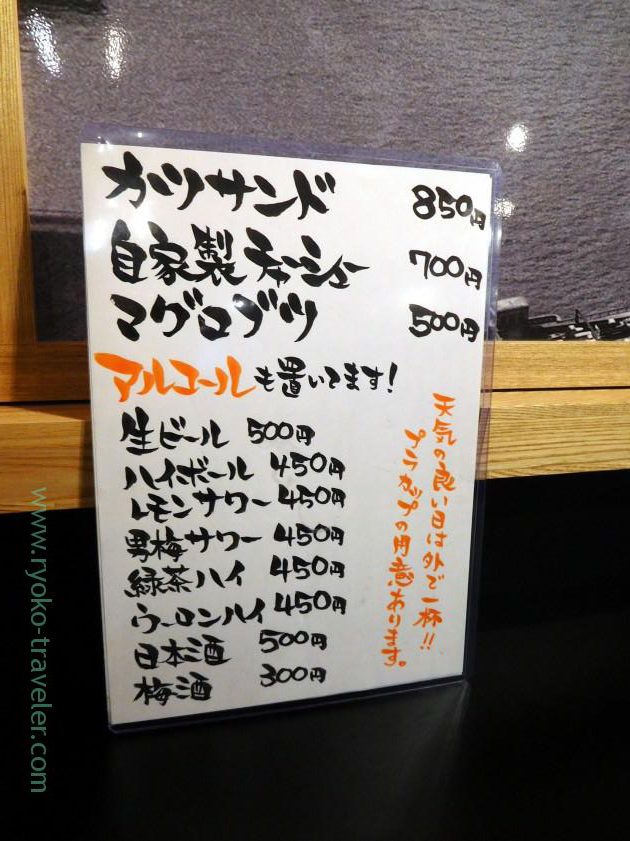 カツサンド 850円
自家製チャーシュー 700円
マグロブツ 500円
アルコールも置いてます!
生ビール 500円
ハイボール 450円
レモンサワー 450円
男梅サワー 450円
緑茶ハイ 450円
ウーロンハイ 450円
日本酒 500円
梅酒 300円
天気の良い日は外で一杯!!
プラカップの用意あります。
www.ryoko-traveler.com